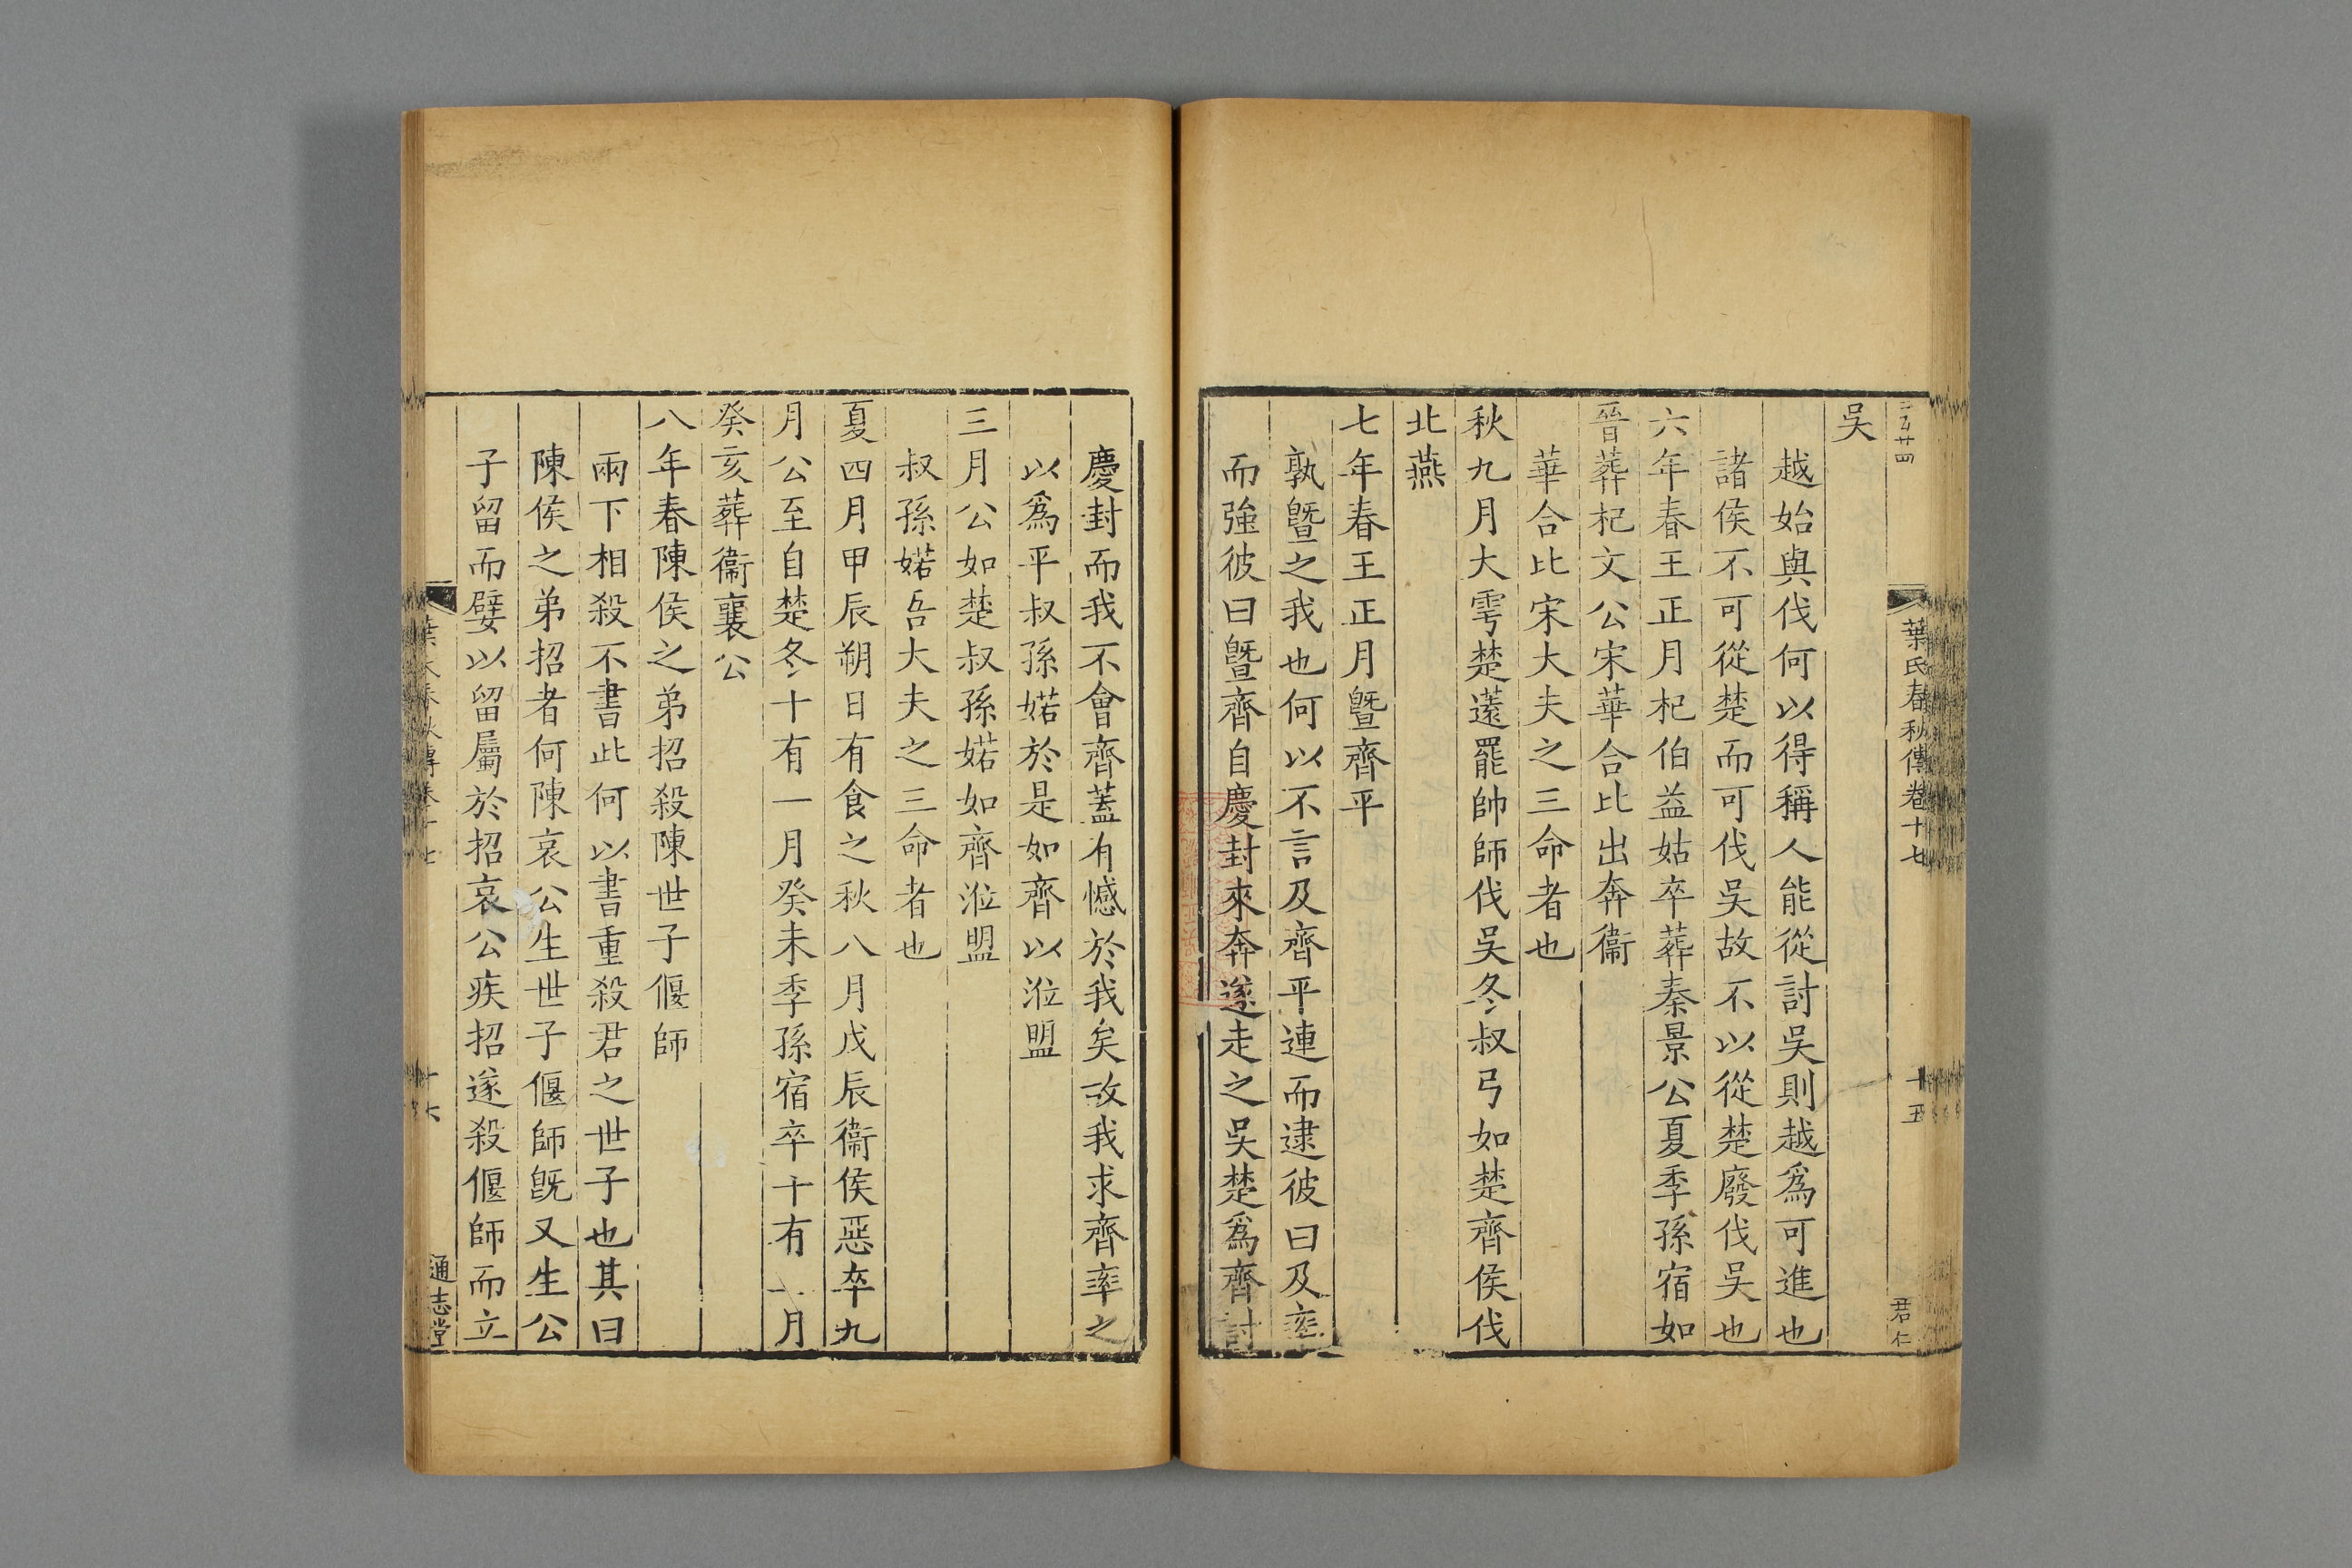 葉氏春秋傳卷十七
十五
君仁
吳
越始與伐何以得稱人能從討吳則越爲可進也
諸侯不可從楚而可伐吳故不以從楚廢伐吳也
六年春王正月杞伯益姑卒葬秦景公夏季孫宿如
晉葬杞文公宋華合比出奔衞
華合比宋大夫之三命者也
秋九月大雩楚薳罷帥師伐吳冬叔弓如楚齊侯伐
北燕
七年春王正月曁齊平
孰曁之我也何以不言及齊平連而逮彼曰及率
而強彼曰曁齊自慶封來奔遂走之吳楚爲齊討
慶封而我不會齊蓋有憾於我矣故我求齊率之
以爲平叔孫婼於是如齊以涖盟
三月公如楚叔孫婼如齊涖盟
叔孫婼吾大夫之三命者也
夏四月甲辰朔日有食之秋八月戊辰衞侯惡卒九
月公至自楚冬十有一月癸未季孫宿卒十有二月
癸亥葬衞襄公
八年春陳侯之弟招殺陳世子偃師
兩下相殺不書此何以書重殺君之世子也其曰
陳侯之弟招者何陳哀公生世子偃師旣又生公
子留而嬖以留屬於招哀公疾招遂殺偃師而立
十六
通志堂